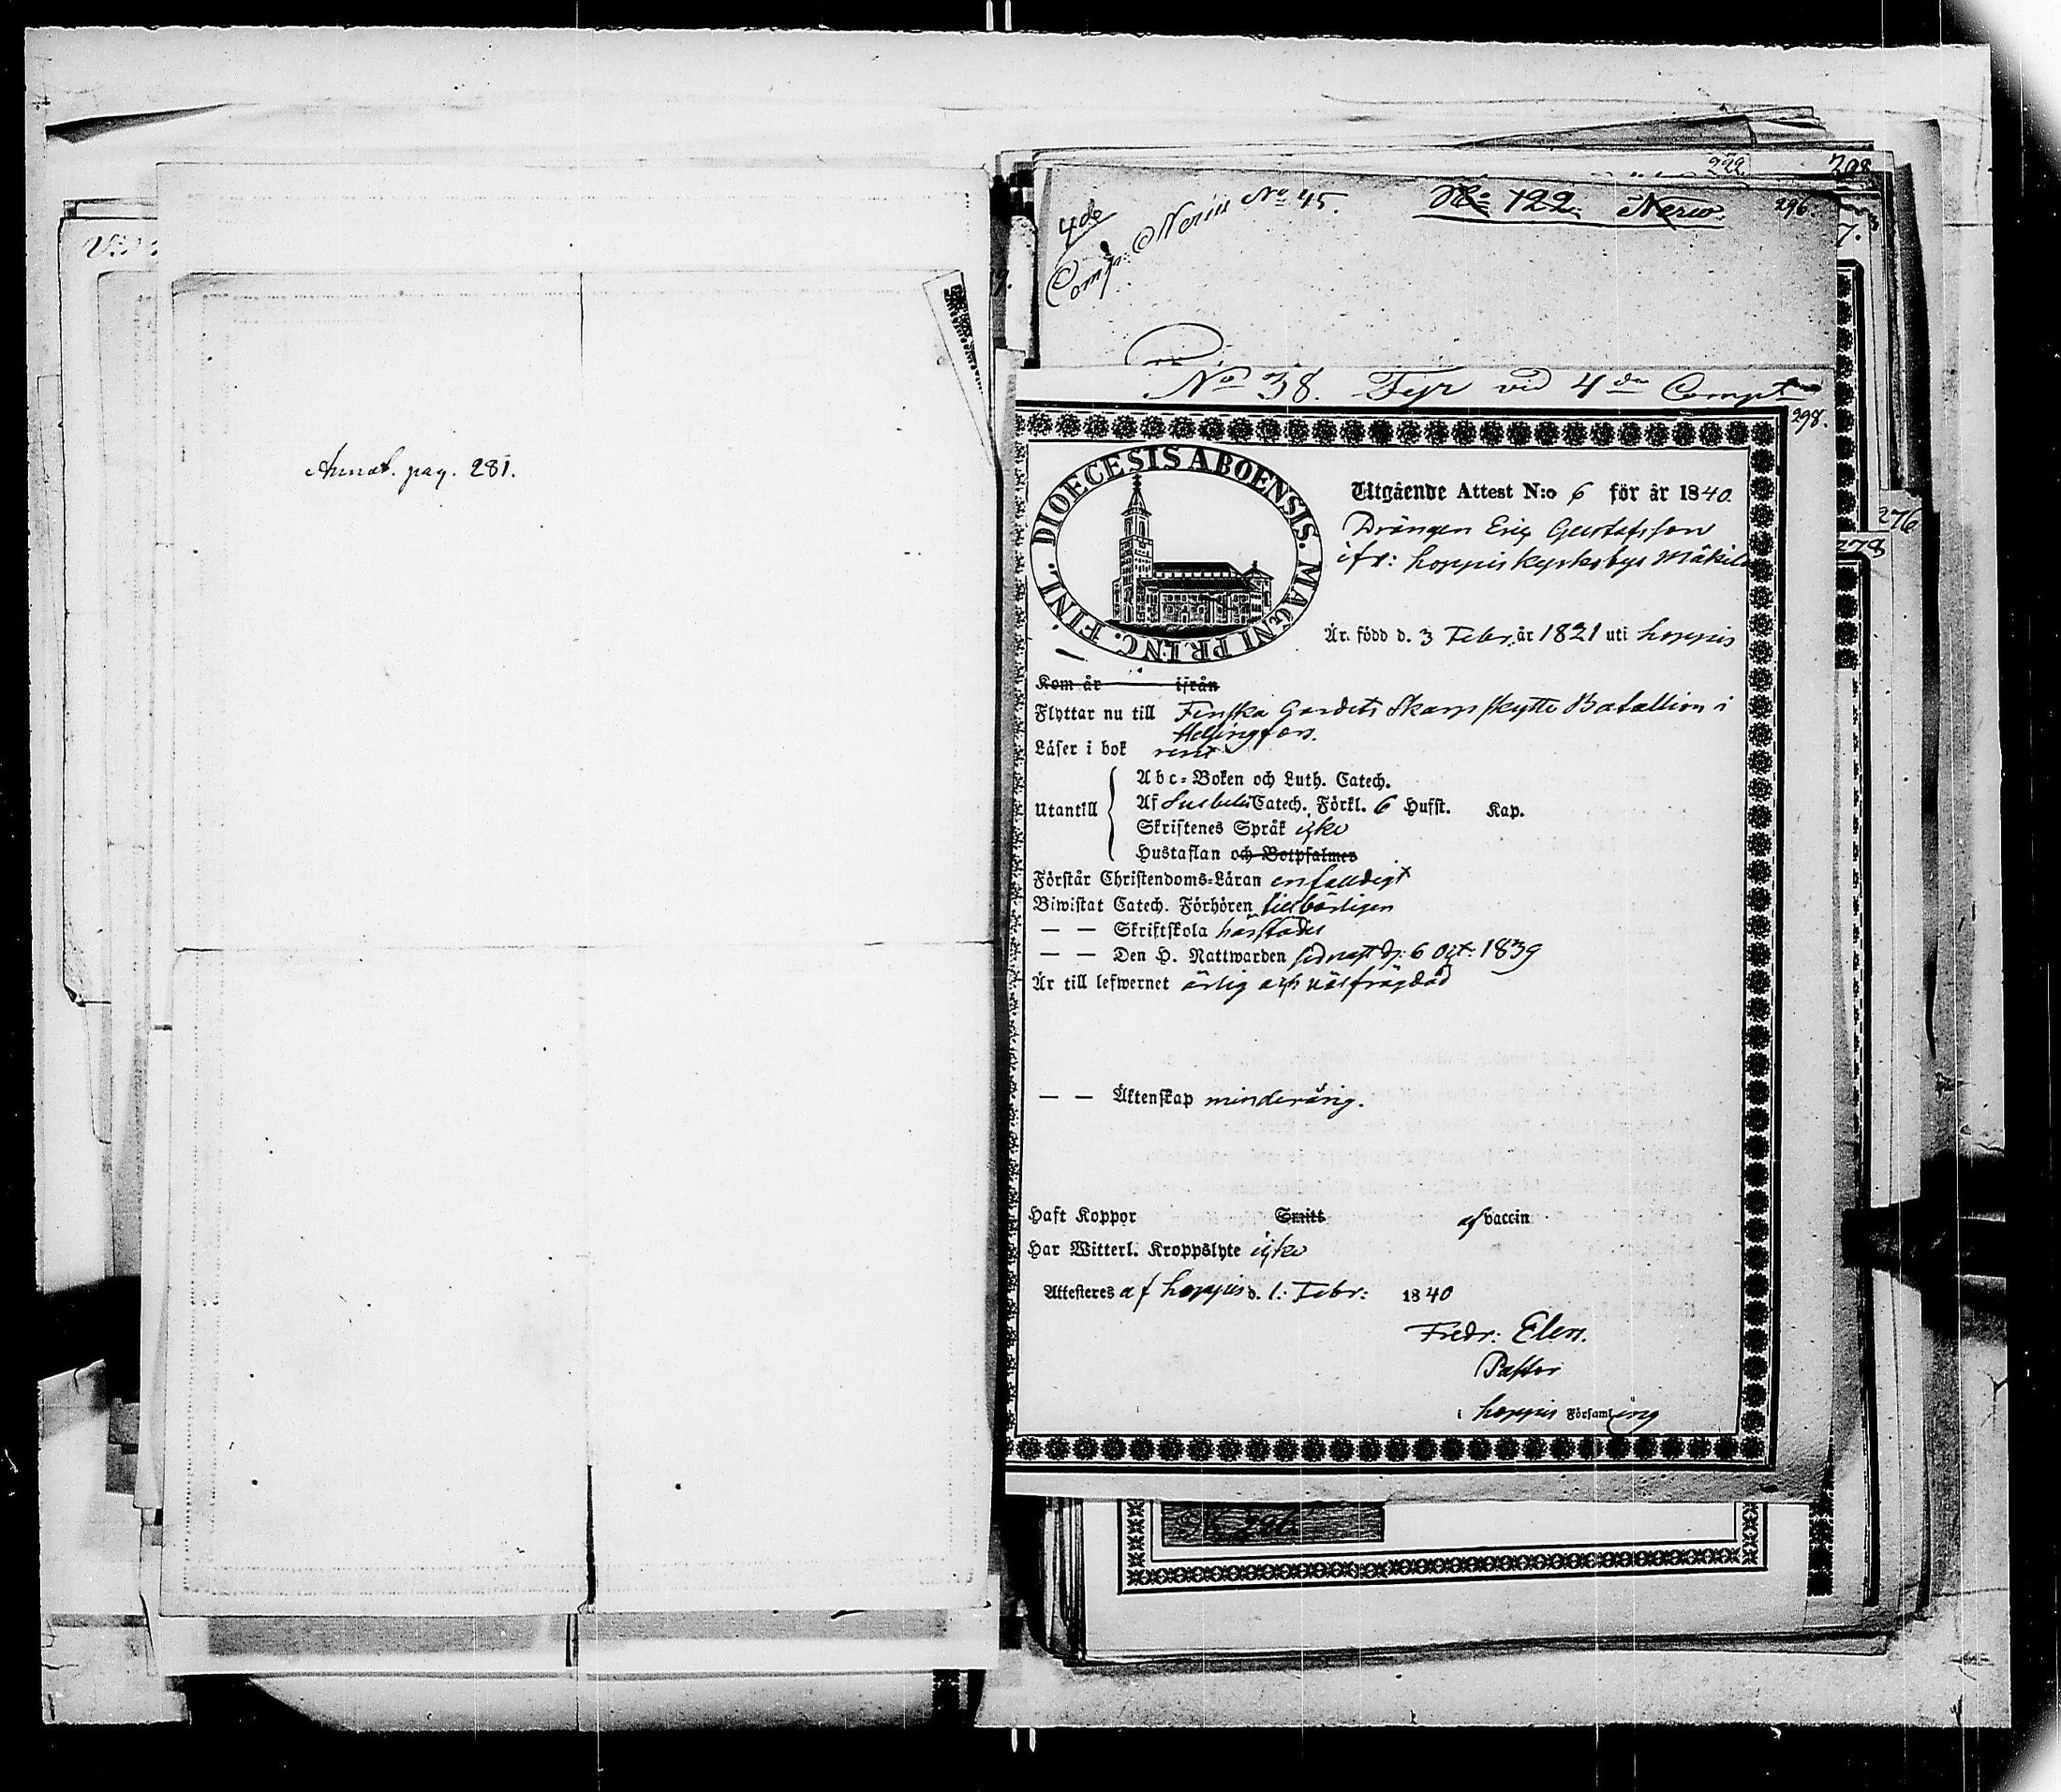 Annot. pag. 281.
222
208
4de
Comp: Nerin No 45.
No 122. Nerw.
296.
7.
No 38. Fyr vid 4de Compt
298.
DIOECESIS ABOENSIS. MAGNI PRINC. FINL.
Utgående Attest N:o 6 för år 1840.
Drängen Eric Gustafsson
ifr: Loppis Kyrkoby Mäkilä
Är född d. 3 Febr. år 1821 uti Loppis
Kom år ifrån
Flyttar nu till Finska Gardets Skarpskytte Bataillion i
Helsingfors.
Läser i bok rent
Utantill
Abc-Boken och Luth. Catech.
Af Svebelii Catech. Förkl. 6 Hufst. Kap.
Skriftenes Språk icke
Hustaflan och Botpsalmer
Förstår Christendoms-Läran enfaldigt
Biwistat Catech. Förhören tillbörligen
— — Skriftskola härstädes
— — Den H. Nattwarden sednast d. 6 Oct: 1839
Är till lefwernet ärlig och välfrägdad
— — Äktenskap minderårig.
Haft Koppor Smitt af vaccin
Har Witterl. Kroppslyte icke
Attesteres af Loppis d. 1: Febr: 1840
Fredr: Elen.
Pastor
i Loppis Församling
276
278